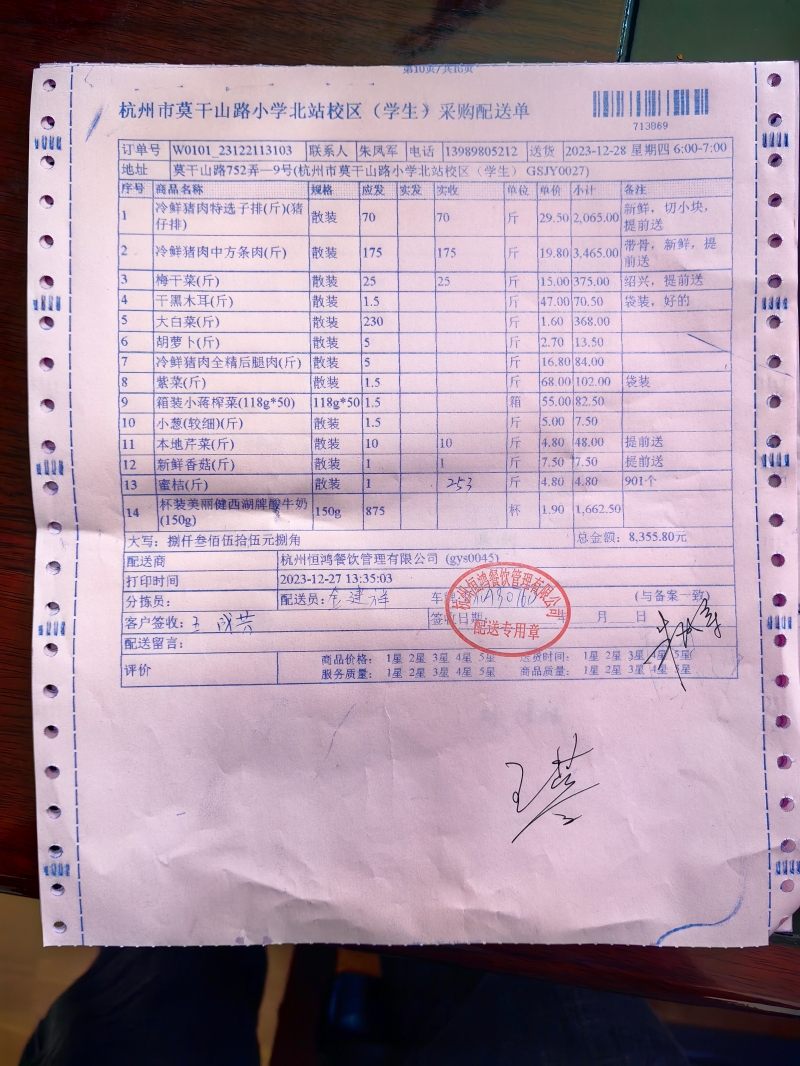 第10页/共16页
杭州市莫干山路小学北站校区（学生）采购配送单
713869
订单号 W0101_23122113103 联系人 朱凤军 电话 13989805212 送货 2023-12-28 星期四 6:00-7:00
地址 莫干山路752弄一9号(杭州市莫干山路小学北站校区（学生） GSJY0027)
序号 商品名称 规格 应发 实发 实收 单位 单价 小计 备注
1 冷鲜猪肉特选子排(斤)(猪仔排) 散装 70 70 斤 29.50 2,065.00 新鲜，切小块，提前送
2 冷鲜猪肉中方条肉(斤) 散装 175 175 斤 19.80 3,465.00 带骨，新鲜，提前送
3 梅干菜(斤) 散装 25 25 斤 15.00 375.00 绍兴，提前送
4 干黑木耳(斤) 散装 1.5 斤 47.00 70.50 袋装，好的
5 大白菜(斤) 散装 230 斤 1.60 368.00
6 胡萝卜(斤) 散装 5 斤 2.70 13.50
7 冷鲜猪肉全精后腿肉(斤) 散装 5 斤 16.80 84.00
8 紫菜(斤) 散装 1.5 斤 68.00 102.00 袋装
9 箱装小蒋榨菜(118g*50) 118g*50 1.5 箱 55.00 82.50
10 小葱(较细)(斤) 散装 1.5 斤 5.00 7.50
11 本地芹菜(斤) 散装 10 10 斤 4.80 48.00 提前送
12 新鲜香菇(斤) 散装 1 1 斤 7.50 7.50 提前送
13 蜜桔(斤) 散装 1 253 斤 4.80 4.80 901个
14 杯装美丽健西湖牌酸牛奶(150g) 150g 875 杯 1.90 1,662.50
大写：捌仟叁佰伍拾伍元捌角 总金额：8,355.80元
配送商 杭州恒鸿餐饮管理有限公司 (gys0045)
打印时间 2023-12-27 13:35:03
分拣员： 配送员： 建祥 车 (与备案一致)
客户签收： 王 芸 签收日期 年 月 日
杭州恒鸿餐饮管理有限公司
配送专用章
配送留言：
评价 商品价格： 1星 2星 3星 4星 5星 送货时间： 1星 2星 3星 4星 5星
服务质量： 1星 2星 3星 4星 5星 商品质量： 1星 2星 3星 4星 5星